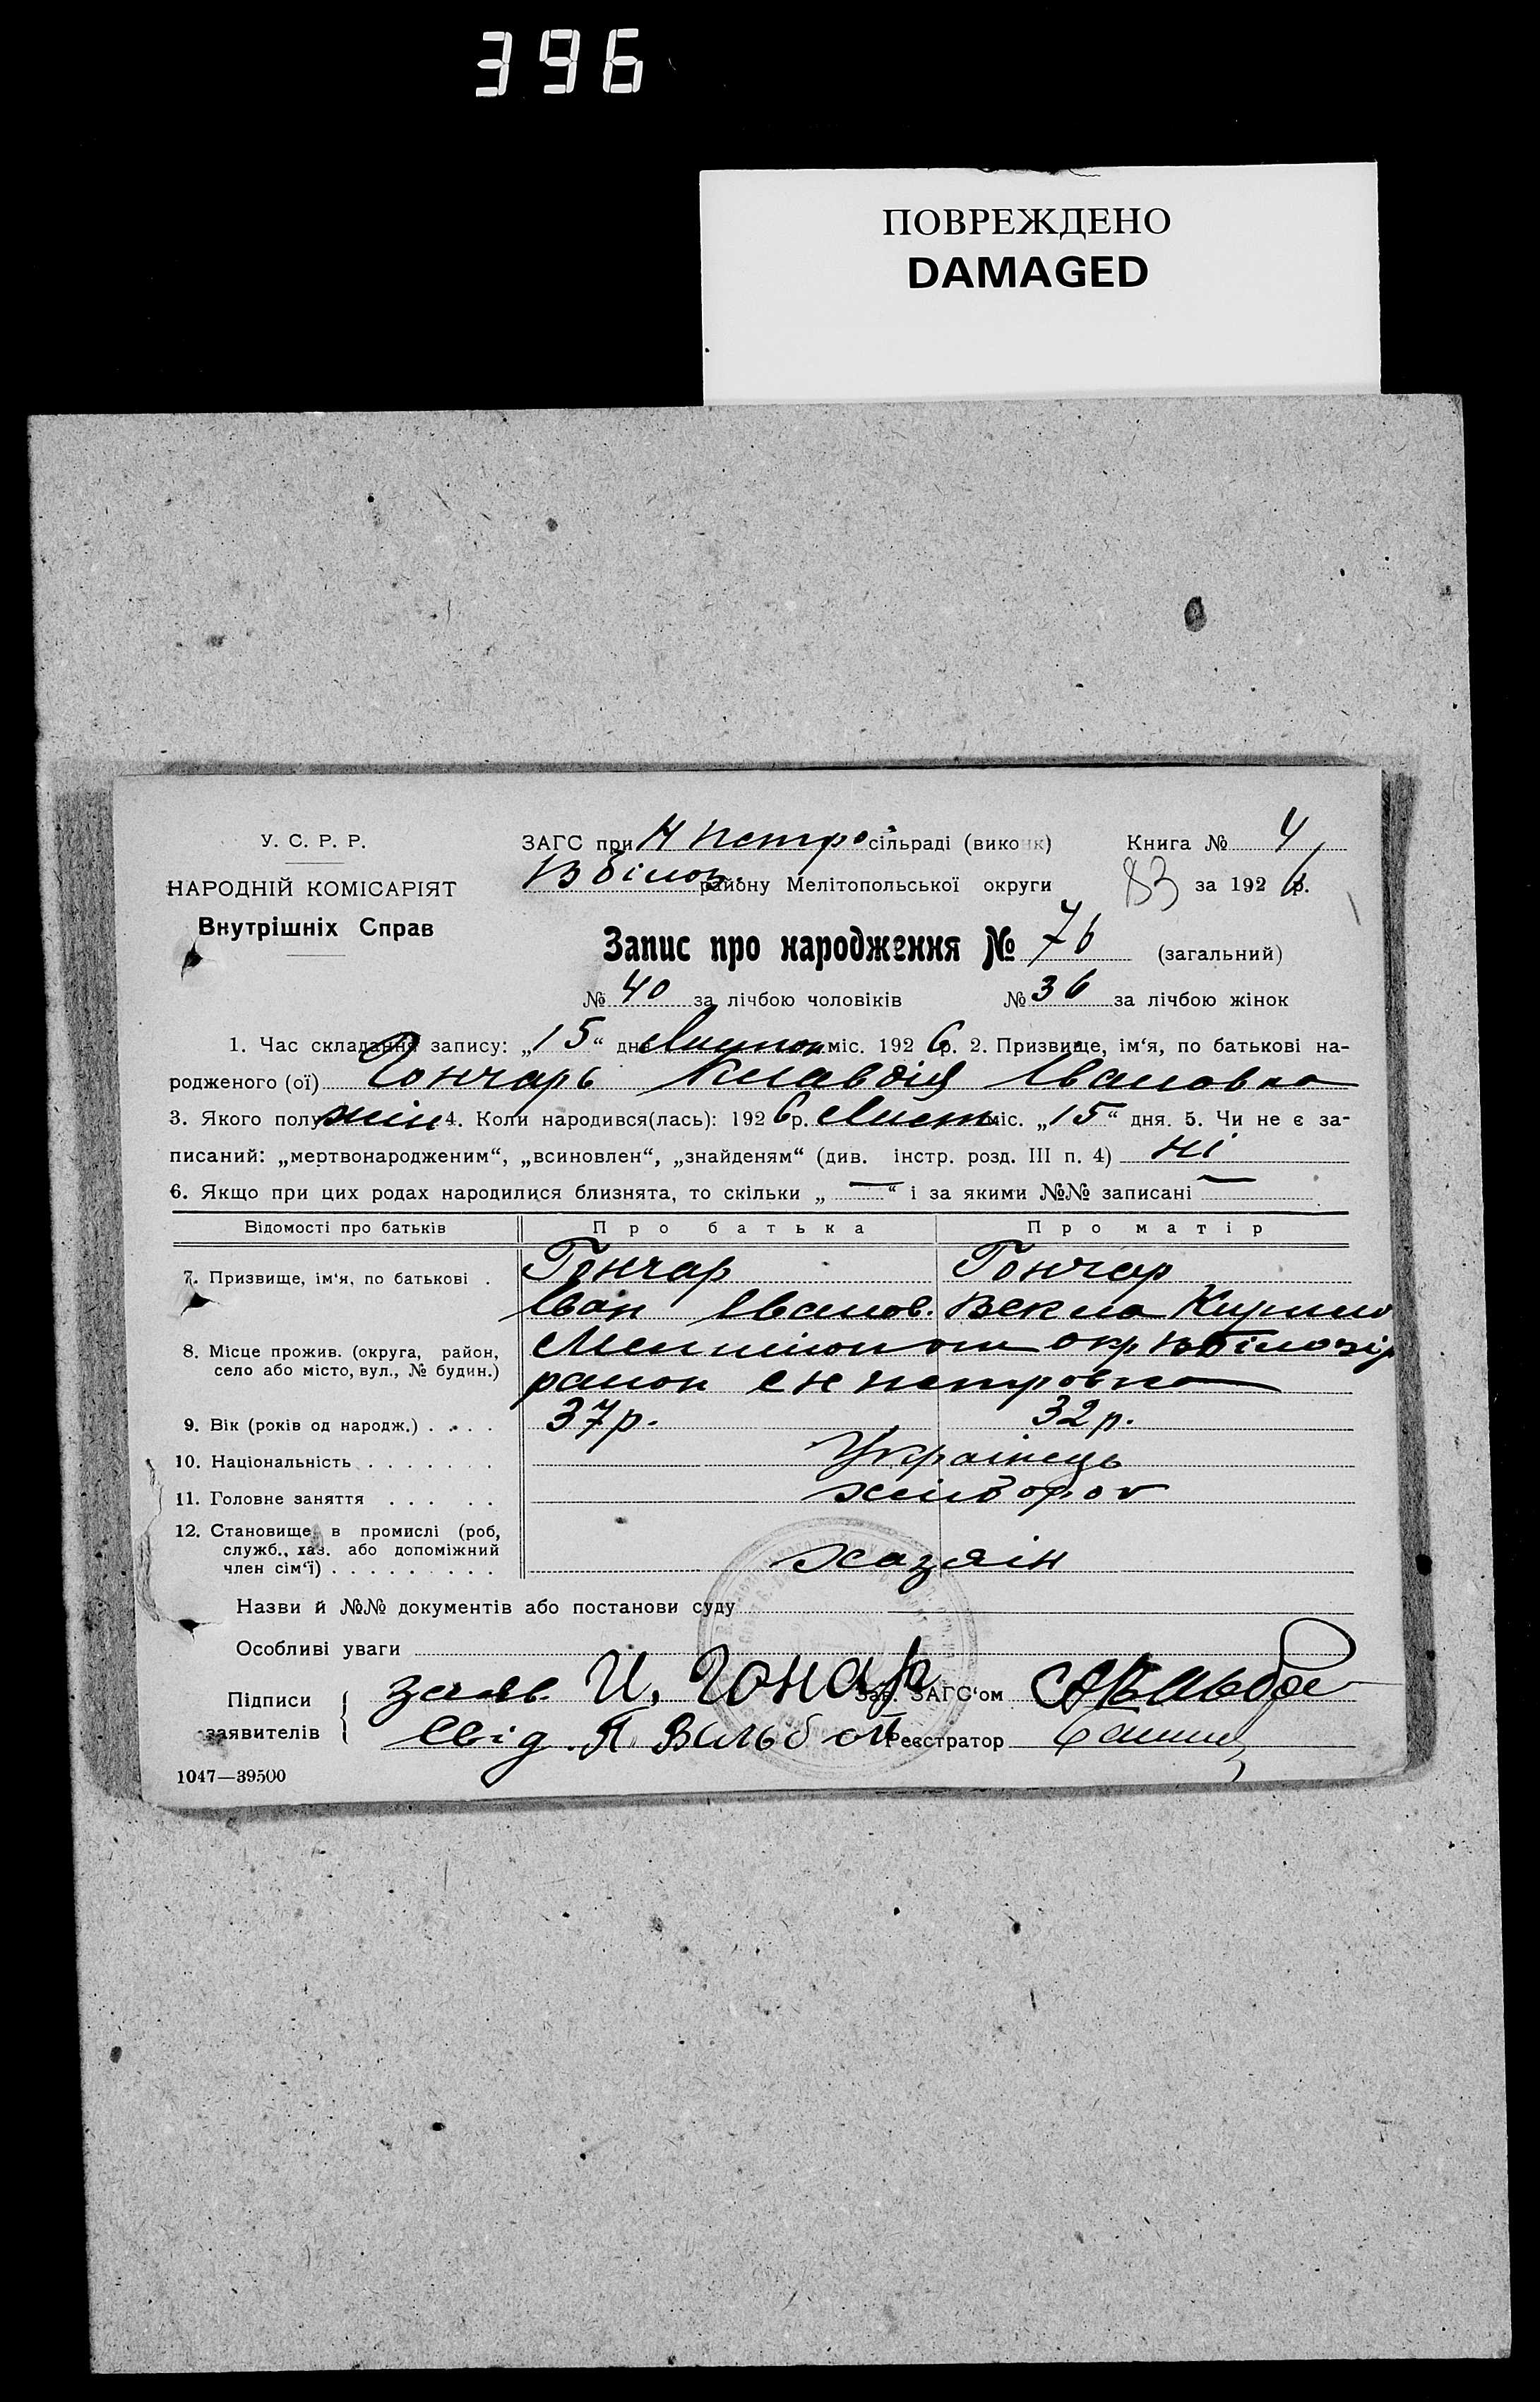 396
ПОВРЕЖДЕНО
DAMAGED
У. С. Р. Р.
НАРОДНІЙ КОМІСАРІЯТ
Внутрішніх Справ
ЗАГС при Н Петро сільраді (викон к) Книга № 4
В біло району Мелітопольської округи 83 за 1926 р.
Запис про народження № 76 (загальний)
№ 40 за лічбою чоловіків № 36 за лічбою жінок
1. Час складання запису: „15“ дня міс. 1926 р. 2. Призвище, ім‘я, по батькові на-
родженого (ої) Гончарь Клавдія Івановна
3. Якого полу жін 4. Коли народився(лась): 1926 р. Лист міс. „15“ дня. 5. Чи не є за-
писаний: „мертвонародженим“, „всиновлен“, „знайденям“ (див. інстр. розд. III п. 4) ні
6. Якщо при цих родах народилися близнята, то скільки „—“ і за якими №№ записані —
Відомості про батьків Про батька Про матір
7. Призвище, ім‘я, по батькові . Гончар Гончар
Іван Іванов. Векла Кирило
8. Місце прожив. (округа, район, окр Вбілозір
село або місто, вул., № будин.) район с Н петровка
9. Вік (років од народж.) . . . . 37 р. 32 р.
10. Національність . . . . . . . Українець
11. Головне заняття . . . . . хлібороб
12. Становище в промислі (роб,
служб., хаз. або допоміжний
член сім‘ї) . . . . . . . . . хазяін
Назви й №№ документів або постанови суду
Особливі уваги
Підписи заяв. И. Гонар Зав. ЗАГС‘ом
заявителів Свід. П. Вальбой Реєстратор
1047—39500